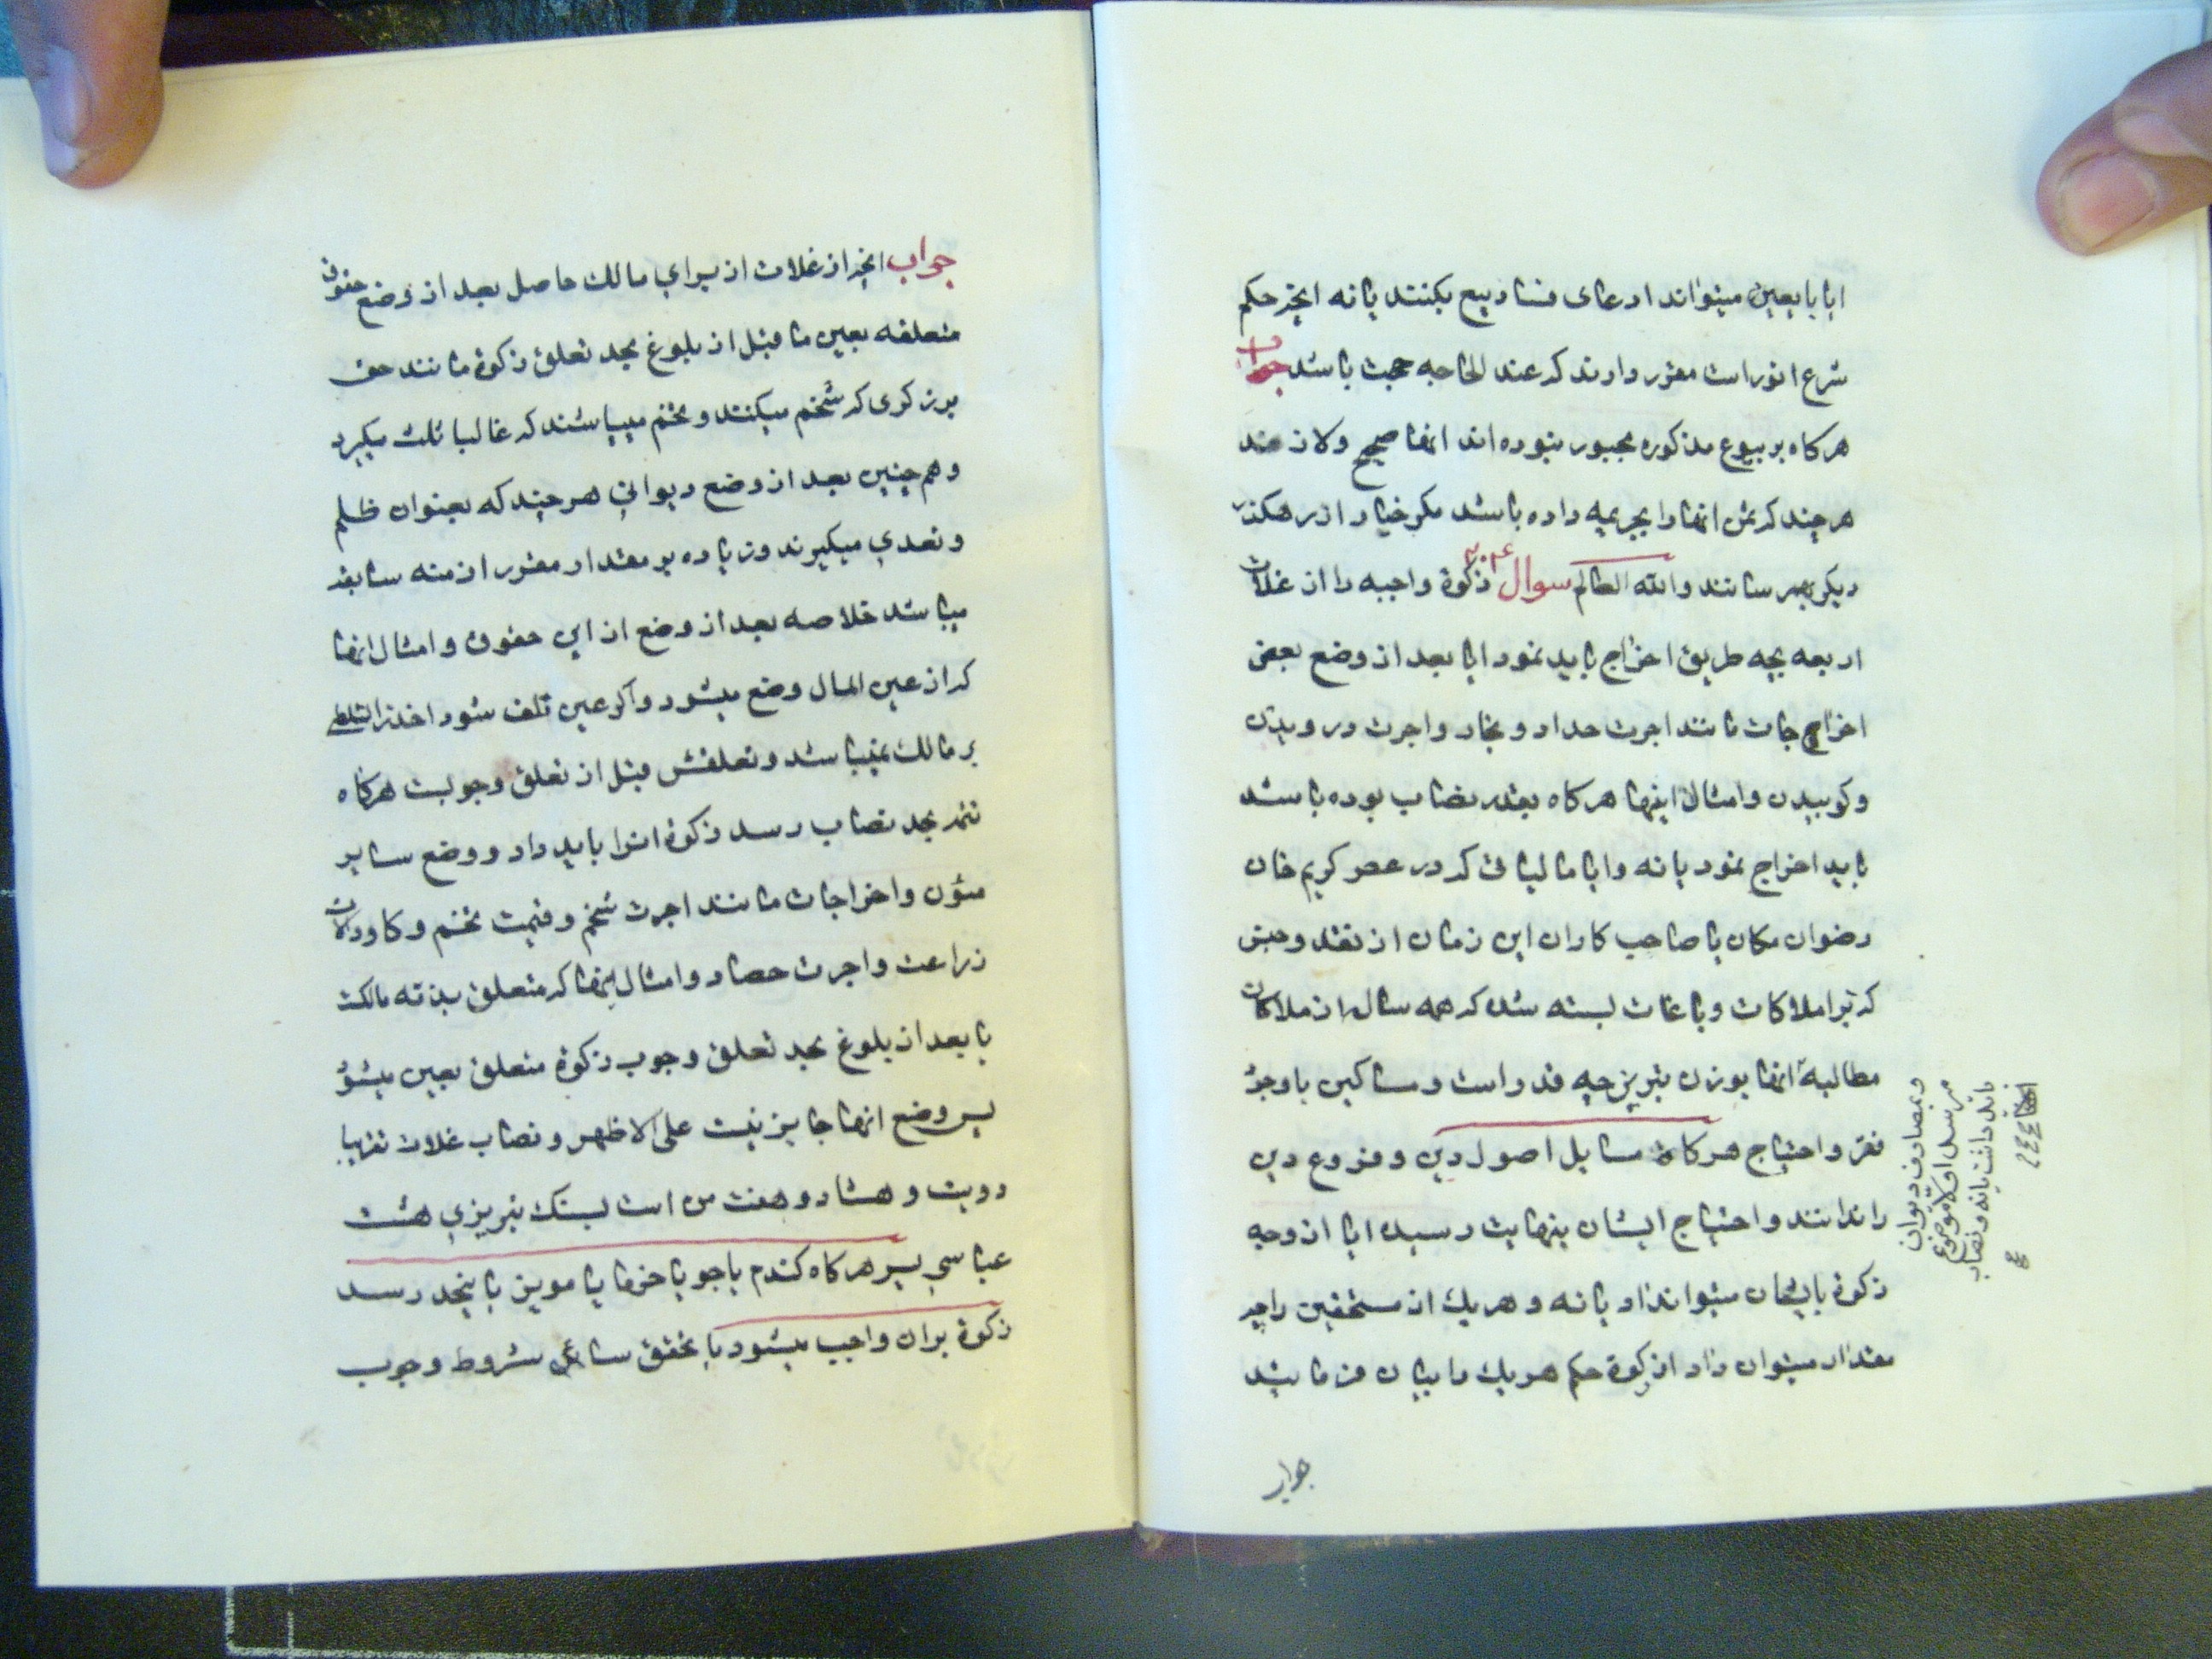 ایا بایعین میتوانند ادعای فساد بیع بکنند یا نه انچه حکم
شرع انور است مقرر دارند که عند الحاجه حجت باشد جواب
هر کاه بر بیوع مذکوره مجبور نبوده اند انها صحیح ولازمند
هر چند که ثمن انها را بجریمه داده باشند مکر خیار از رهکذر
دیکر بهم رسانند والله العالم سوال زکوة واجبه را از غلات
اربعه بچه طریق اخراج باید نمود ایا بعد از وضع بعض
اخراج جات مانند اجرت حداد و نجار و اجرت درویدن
وکوبیدن وامثال اینها هر کاه بقدر نصاب بوده باشد
باید اخراج نمود یا نه وایا مالیاتی که در عصر کریم خان
رضوان مکان یا صاحب کاران این زمان از نقد وجنس
که بر املاکات وباغات بسته شده که همه ساله از ملاکان
مطالبه انها بوزن تبریز چه قدر است ومساکین با وجود
فقر واحتیاج هرکاه مسایل اصول دین وفروع دین
را ندانند واحتیاج ایشان بنهایت رسیده ایا از وجه
زکوة بایشان میتوان داد یا نه وهر یك از مستحقین را چه
مقدار میتوان داد از زکوة حکم هر یك را بیان فرمایند
وبمصارف دیوان
میرسد اولا موضوع
باید داشت یا نه ونصاب
جواب
جواب انچه از غلات از برای مالك حاصل بعد از وضع حقوق
متعلقه بعین ما قبل از بلوغ بحد تعلق زکوة مانند حق
برزکری که شخم میکنند وتخم میپاشند که غالبا ثلث میکیرد
وهم چنین بعد از وضع دیوانی هر چند که بعنوان ظلم
وتعدی میکیرند وزیاده بر مقدار مقرر ازمنه سابقه
میباشد خلاصه بعد از وضع از این حقوق وامثال انها
که از عین المال وضع میشود واکر عین تلف شود اخذ
بر مالك نمیباشد وتعلقش قبل از تعلق وجوبست هرکاه
تتمه بحد نصاب رسد زکوة انرا باید داد ووضع سایر
مئون واخراجات مانند اجرت شخم وقیمت تخم وکاو والات
زراعت واجرت حصاد وامثال اینها که متعلق بذمه مالکست
یا بعد از بلوغ بحد تعلق وجوب زکوة متعلق بعین میشود
پس وضع انها جایز نیست علی الاظهر ونصاب غلات تقریبا
دویست وهشتاد وهفت من است بسنك تبریزی هشت
عباسی پس هر کاه کندم یا جو یا خرما یا مویز باینحد رسد
زکوة بران واجب میشود با تحقق سایر شروط وجوب